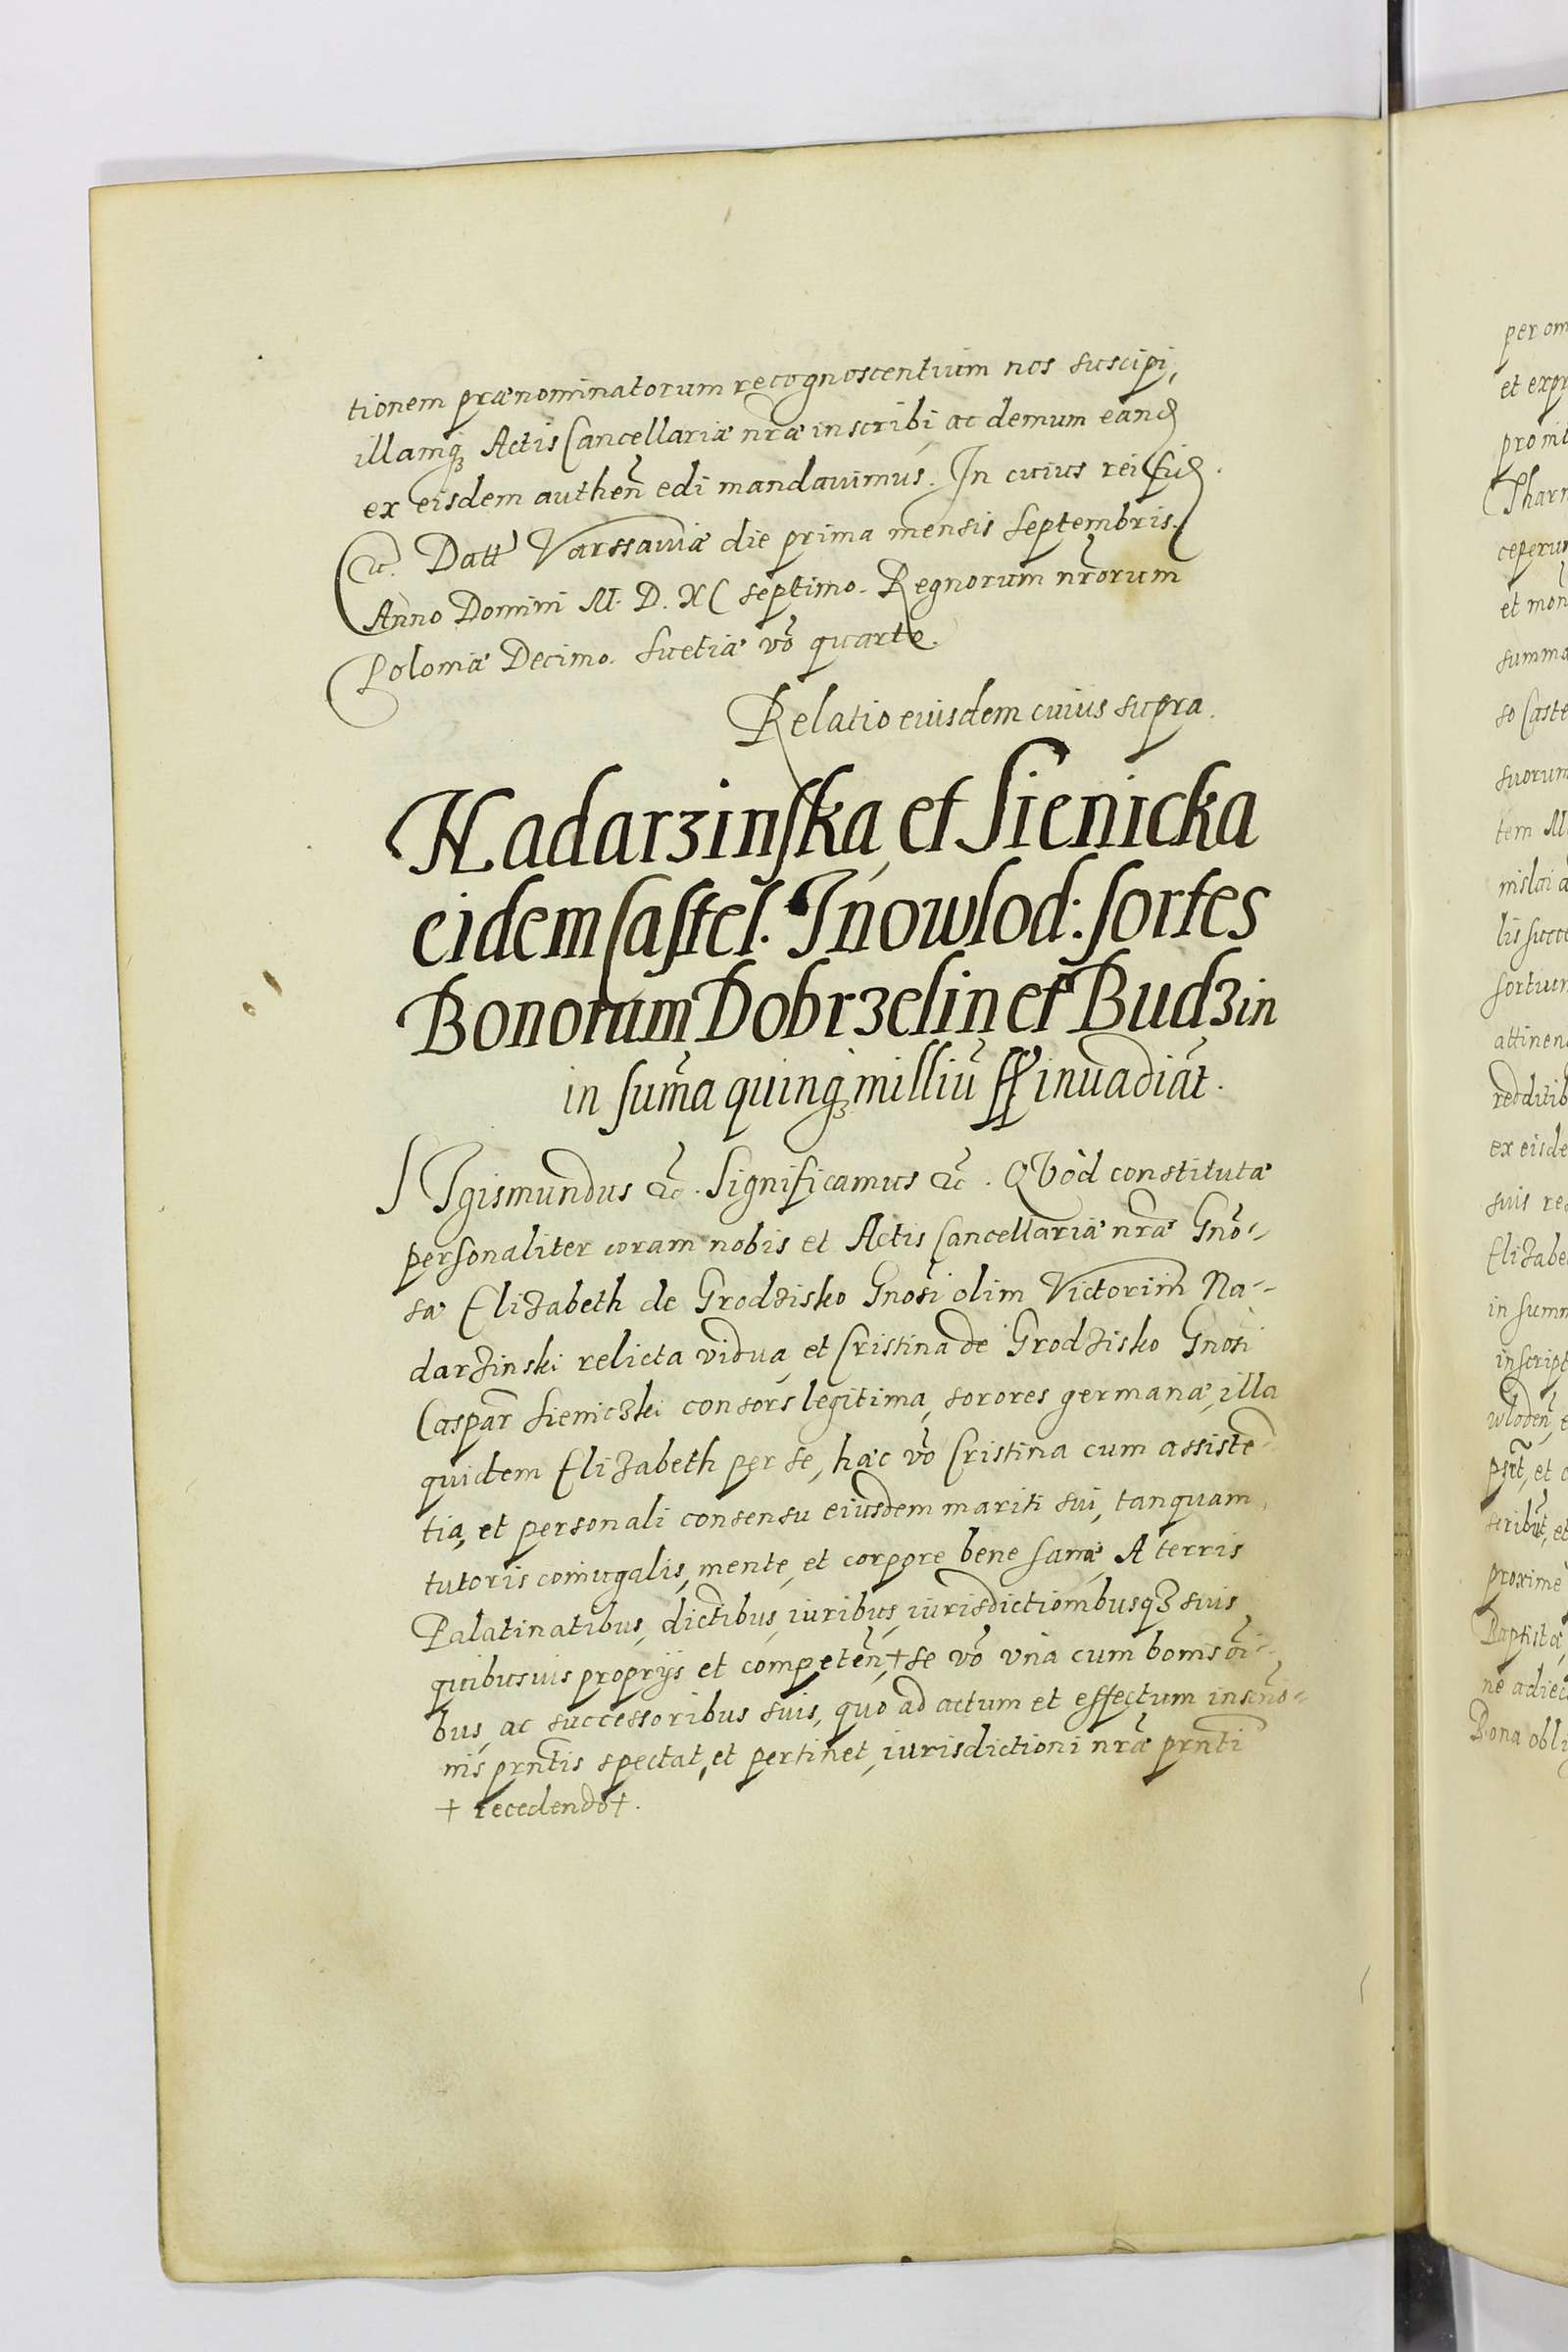 tionem prænominatorum recognoscentium nos suscipi,
illamqꝫ Actis Cancellariæ nr̃æ inscribi ac demum eand̃
ex eisdem authen̄ edi mandauimus. In cuius rei fid̃.
etc̃. Datt Varssauiæ die prima mensis Septembris.
Anno Domini M. D. XC septimo. Regnorum nr̃orum
Poloniæ Decimo. Suetiæ vō quarto.
Relatio eiusdem cuius supra.
Nadarzinska, et Sienicka
eidem Castel. Inowlod: sortes
Bonorum Dobrzelin et Budzin
in sum̃a quinqꝫ milliũ ff inuadiãt.
SIgismundus etc̃. Significamus etc̃. QVòd constitutæ
personaliter coram nobis et Actis Cancellariæ nr̃æ Gnõ-
sæ Elizabeth de Grodzisko Gnõsi olim Victorini Na-
darzinski relicta vidua, et Cristina de Grodzisko Gnõsi
Caspar̃ Sieniczki consors legitima, sorores germanæ, illa
quidem Elizabeth per se, hæc vō Cristina cum assistẽ
tia, et personali consensu eiusdem mariti sui, tanquam
tutoris coniugalis, mente, et corpore bene sanæ, A terris
Palatinatibus, dictibus, iuribus, iurisdictionibusqꝫ suis
quibusuis proprijs et competeñ, † se vō vnà cum bonis õi-
bus, ac successoribus suis, quò ad actum et effectum inscño-
nis prñtis spectat, et pertinet, iurisdictioni nr̃æ prñti
† recedendo †.
per om
et expr
promit
Phar
ceperu
et moñ
summa
so Caste
suorum
tem M
nislai a
lis succ
sortiu
attinen
redditib
ex eisde
suis re
Elizabe
in summ
inscript
wlodeñ, e
et
scribũt, et
proxime
Baptistæ,
ne adiec
Bona obli